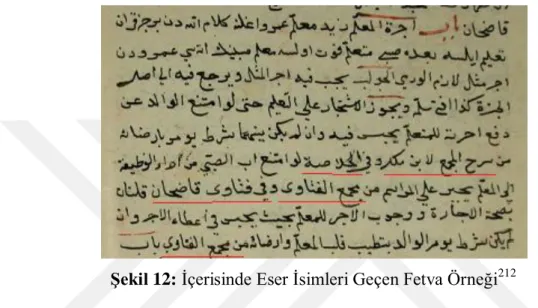 قاضيخان باب اجرة المعلم زيد معلم عمرو اوغلنه كلام الله دن بر جزء قرآن
تعليم ايلسه بعده صبي متعلم فوت اولسه معلم
اجر مثل لازم الجواب يجب فيه اجر المثل ويرجع فيه الى اهل
كذا في ويجوز الاستئجار على التعليم حتى لو امتنع الوالد عن
دفع اجرت للمتعلم يحبس فيه وان لم يكن بينهما شرط يؤمر بارضائه
من شرح المجمع لابن ملك وفي الخلاصة لو امتنع اب الصبي من اداء الوظيفة
الى المعلم يحبس على المراسم من مجمع الفتاوى وفي فتاوى قاضيخان
بصحة الاجارة ووجوب الاجر للمعلم بحيث يحبس في اعطاء الاجر وان
لم يكن شرط يؤمر الوالد بتطييب قلب المعلم وارضائه من مجمع الفتاوى باب
Şekil 12: İçerisinde Eser İsimleri Geçen Fetva Örneği212